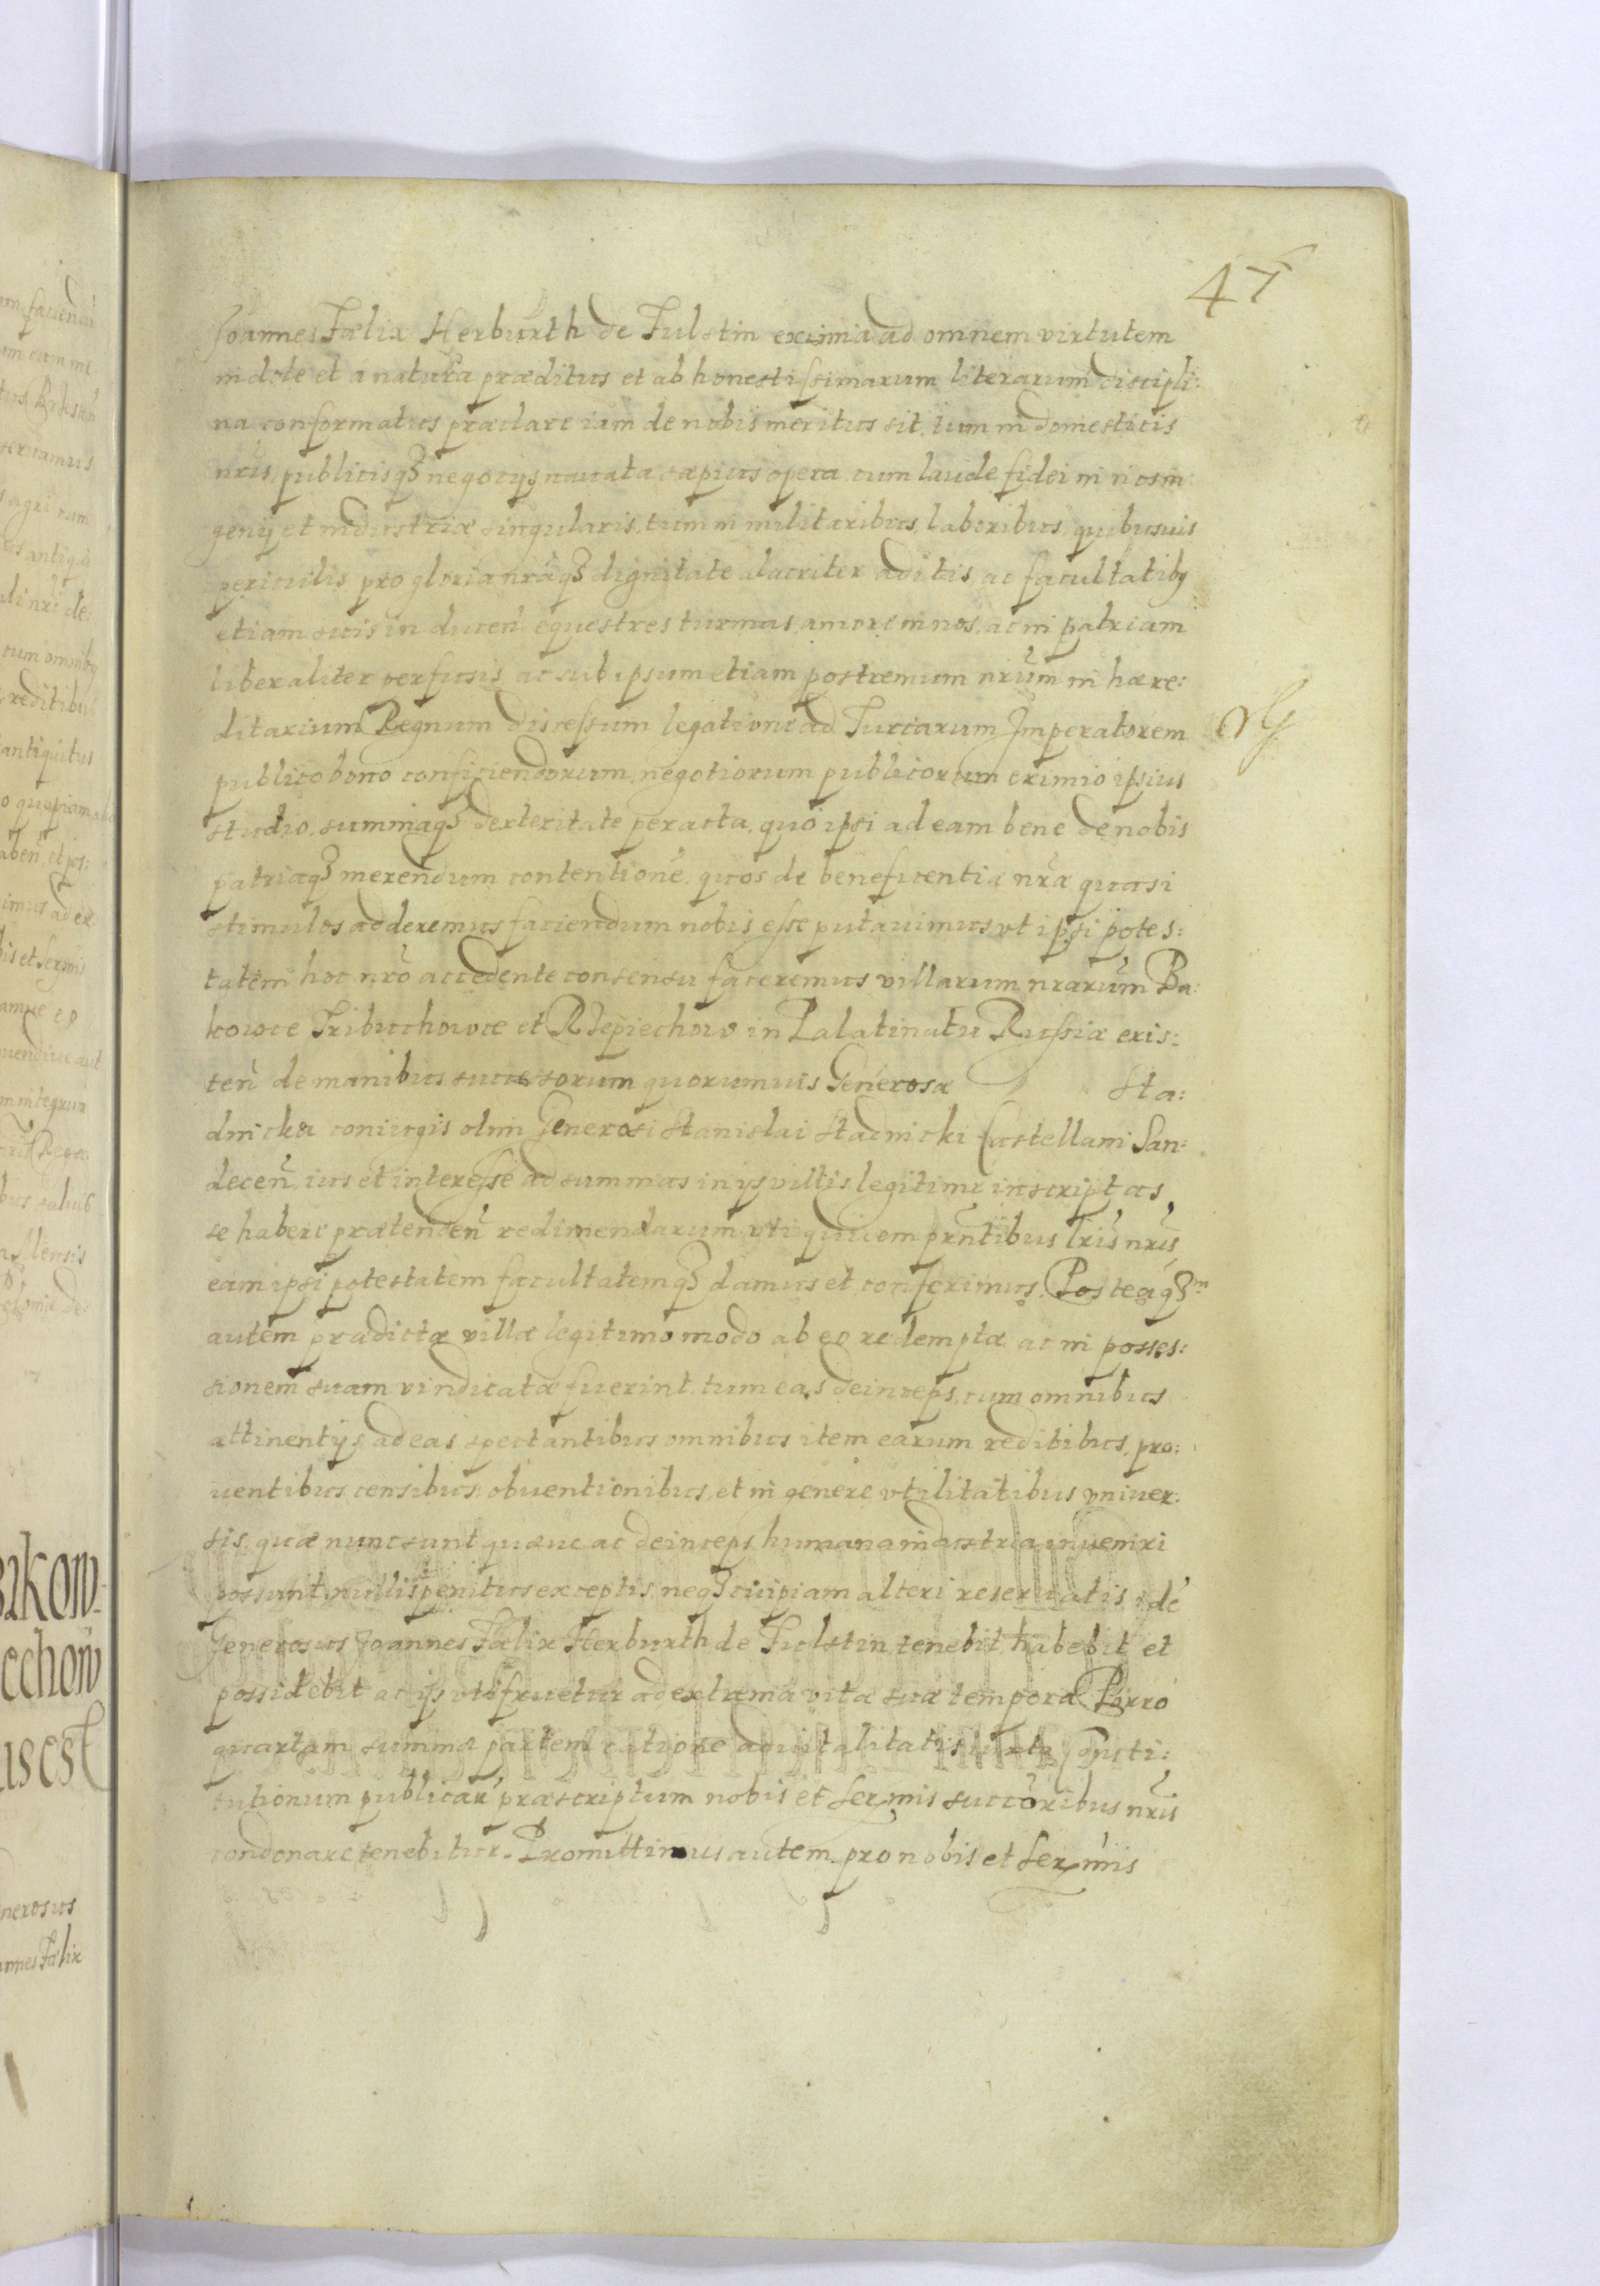 47
Joannes Fælix Herburth de Fulstin eximia ad omnem virtutem
indole et a natura præditus et ab honestissimarum literarum discipli:
na conformatus præclare iam de nobis meritus sit, tum in domesticis
nr̃is publicisq́3 negocijs nauata sæpius opera cum laude fidei in nos in
genij et industriæ singularis, tum in militaribus laboribus, quibusuis
periculis pro gloria nrãq́3 dignitate alacriter aditis, ac facultatibq
etiam suis in ducen̄ equestres turmas, amore in nos, ac in patriam
liberaliter perfusis, ac sub ipsum etiam postremum nrũm in hære:
ditarium Regnum discessum legatione ad Turcarum Imperatorem
publico bono conficiendorum negotiorum publicorum eximio ipsius
studio, summaq́3 dexteritate peracta, quo ipsi ad eam bene de nobis
patriaq́3 merendum contentionē, quos de beneficentia nrã quasi
stimulos adderemus faciendum nobis esse putauimus vt ipsi potes:
tatem hoc nrõ accedente consensu faceremus villarum nrarũm Ba:
kowce Tribuchowce et Rzepiechow in Palatinatu Russiæ exis:
ten̄ de manibus successorum quorumuis Generosæ Sta:
dnicka coniugis olim Generosi Stanislai Stadnicki Castellani San:
decen̄, ius et interesse ad summas in ijs villis legitime inscriptas
se habere prætenden̄ redimendarum, vti quidem prñtibus lrĩs nrĩs
eam ipsi potestatem facultatemq́3 damus et conferimus. Posteaq́3m
autem prædictæ villæ legitimo modo ab eo redemptæ ac in posses:
sionem suam vindicatæ fuerint, tum eas deinceps, cum omnibus
attinentijs, ad eas spectantibus omnibus item earum reditibus, pro:
uentibus censibus, obuentionibus, et in genere vtilitatibus vniuer:
sis, quæ nunc sunt quæue ac deinceps humana industria inueniri
possunt, nullis penitus exceptis, neq́3 cuipiam alteri reseruatis, idē
Generosus Joannes Fælix Herburth de Fulstin, tenebit, habebit et
possidebit ac ijs vtifruetur ad extrema vitæ suæ tempora. Porro
quartam summæ partem ratione aduitalitatis iuxta Consti:
tutionum publicar̃ præscriptum nobis et Sermis succõribus nrĩs
condonare tenebitur. Promittimus autem pro nobis et Sermis